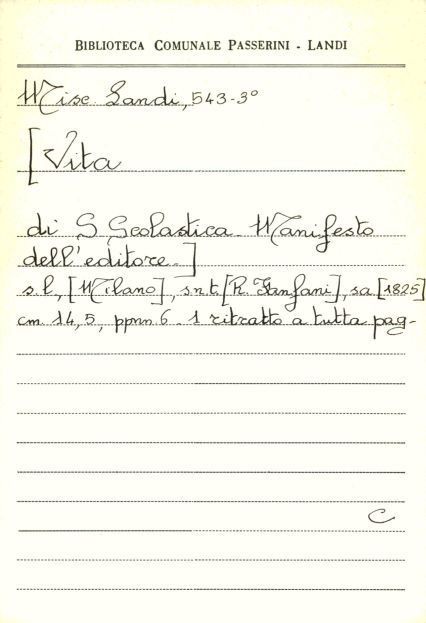 BIBLIOTECA COMUNALE PASSERINI - LANDI
Misc. Landi, 543-3°
[Vita
di S Scolastica. Manifesto
dell'editore.]
s.l, [Milano], s.n.t. [R. Fanfani], s.a [1825]
cm 14,5, ppnn 6. 1 ritratto a tutta pag-
C